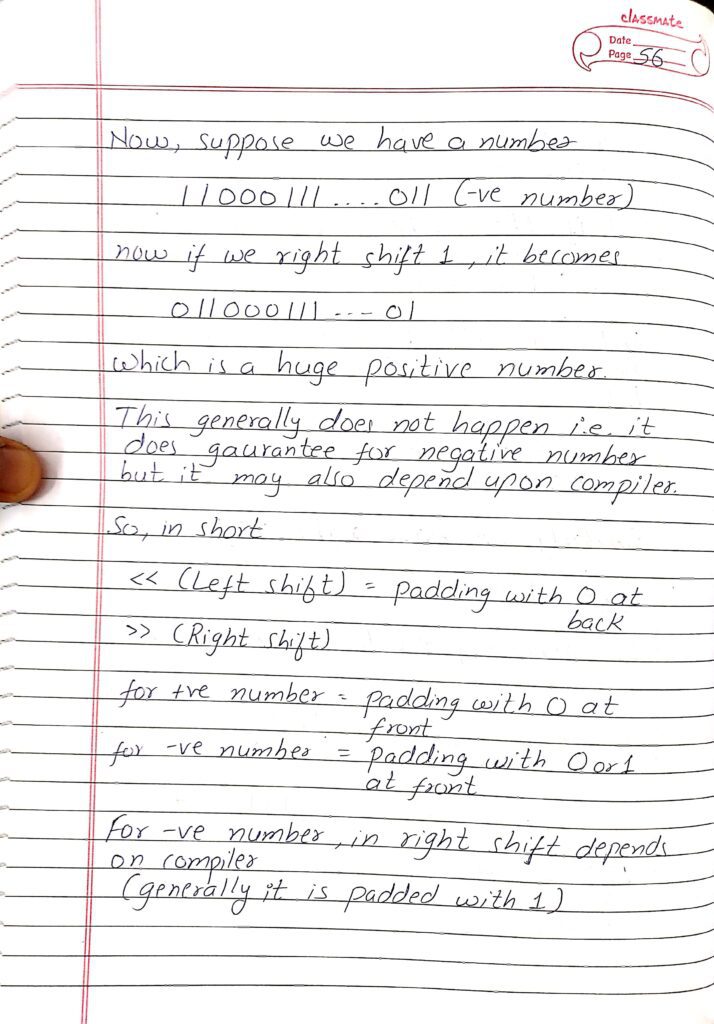 classmate
Date
Page 56
Now, suppose we have a number
11000111 .... 011 (-ve number)
now if we right shift 1, it becomes
011000111 --- 01
which is a huge positive number.
This generally does not happen i.e. it
does gaurantee for negative number
but it may also depend upon compiler.
So, in short
<< (Left shift) = padding with 0 at
back
>> (Right shift)
for +ve number = padding with 0 at
front
for -ve number = padding with 0 or 1
at front
For -ve number, in right shift depends
on compiler
(generally it is padded with 1)